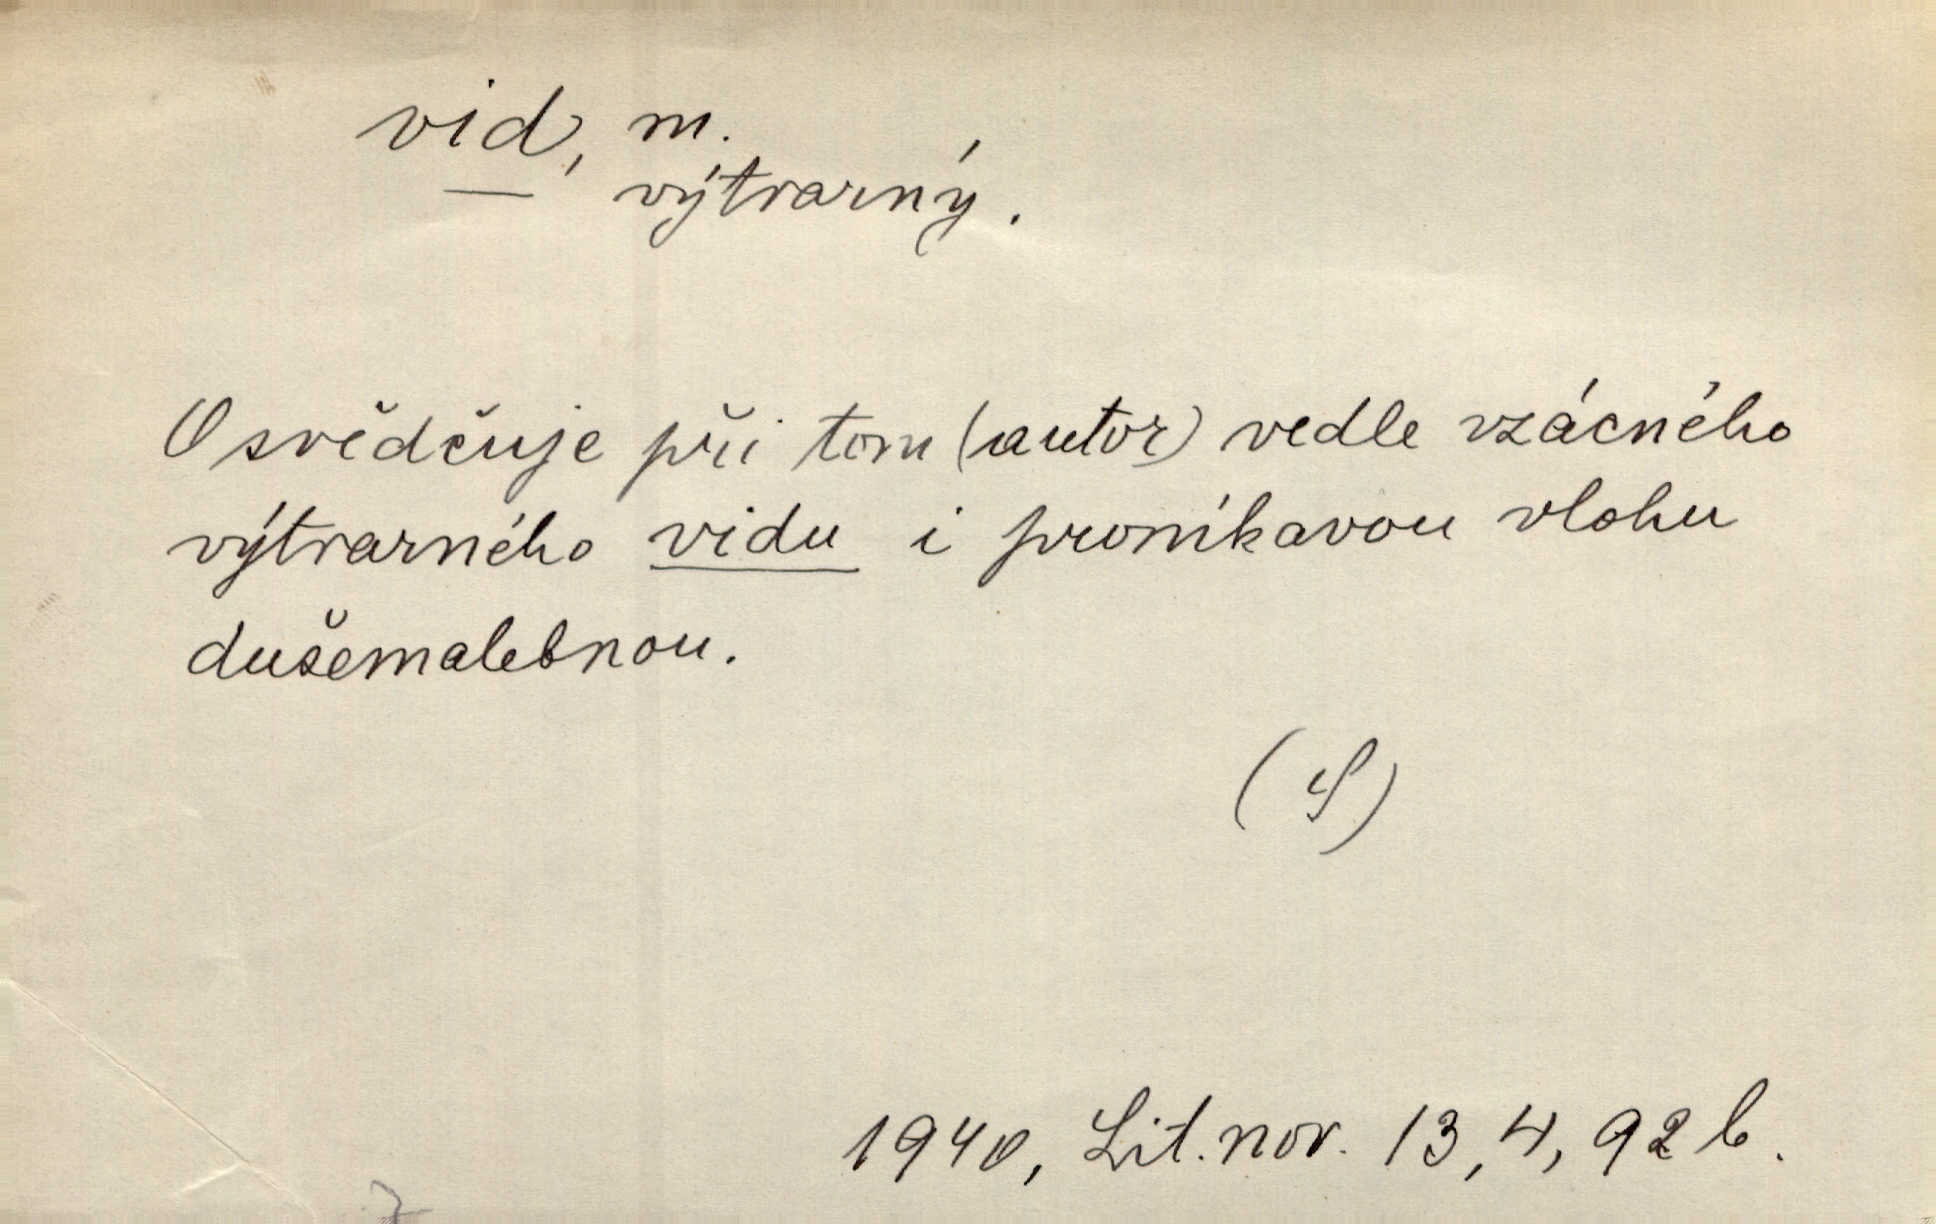 vid, m.
— výtvarný.
Osvědčuje při tom (autor) vedle vzácného
výtvarného vidu i pronikavou vlohu
dušemalebnou.
(S)
1940, Lit. nov. 13, 4, 92 b.